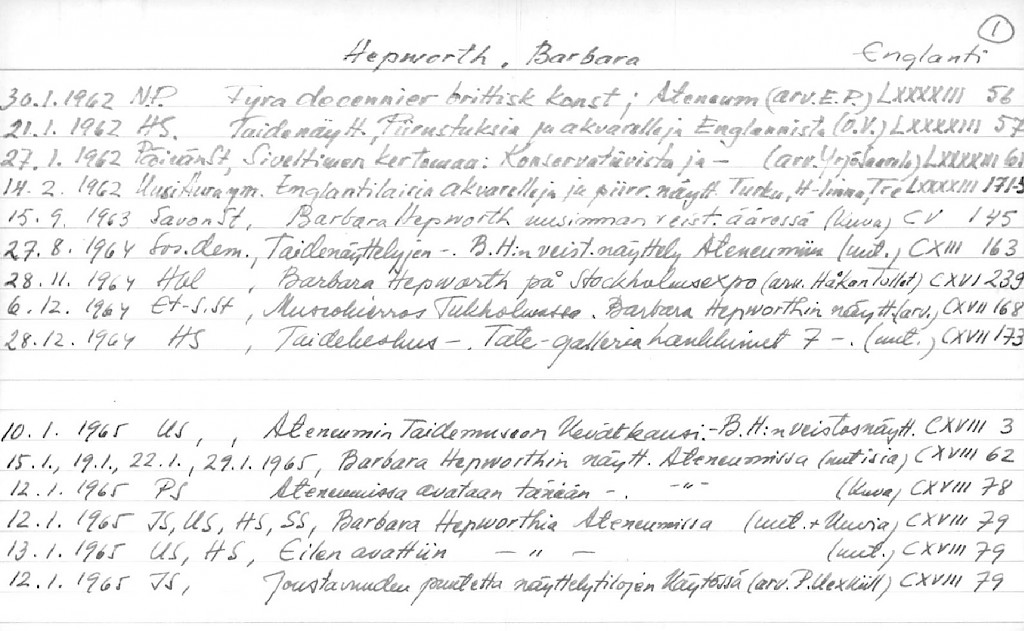 1
Hepworth, Barbara Englanti
30.1.1962 NP. Fyra decennier brittisk konst; Ateneum (arv. E.P.) LXXXXIII 56
21.1.1962 HS. Taidenäytt. Piirustuksia ja akvarelleja Englannista (O.V.) LXXXXIII 57
27.1.1962 PäivänSt, Siveltimen kertomaa: Konservatiivista ja - (arv. Yrjö) LXXXXIII
14.2.1962 UusiAura ym. Englantilaisia akvarelleja ja piirr. näytt. Turku, H-linna, Tre LXXXXIII
15.9.1963 SavonSt, Barbara Hepworth uusimman veist. ääressä (kuva) CV 145
27.8.1964 Sos.dem., Taidenäyttelyjen -. B.H:n veist. näyttely Ateneumiin (uut.) CXIII 163
28.11.1964 Hbl, Barbara Hepworth på Stockholmsexpo (arv. Håkan) CXVI 239
6.12.1964 Et-S.St, Museokierros Tukholmassa. Barbara Hepworthin näytt. (arv.) CXVII 168
28.12.1964 HS, Taidekeskus -. Tate-galleria hankkinut 7 -. (uut.) CXVII 173
10.1.1965 US, , Ateneumin Taidemuseon kevätkausi.- B.H:n veistosnäytt. CXVIII 3
15.1., 19.1., 22.1., 29.1.1965, Barbara Hepworthin näytt. Ateneumissa (uutisia) CXVIII 62
12.1.1965 PS Ateneumissa avataan tänään -. -"- (kuva) CXVIII 78
12.1.1965 JS, US, HS, SS, Barbara Hepworthia Ateneumissa (uut. + kuvia) CXVIII 79
13.1.1965 US, HS, Eilen avattiin - " - (uut.) CXVIII 79
12.1.1965 JS, Joustavuuden puutetta näyttelytilojen käytössä (arv. P. Uexküll) CXVIII 79